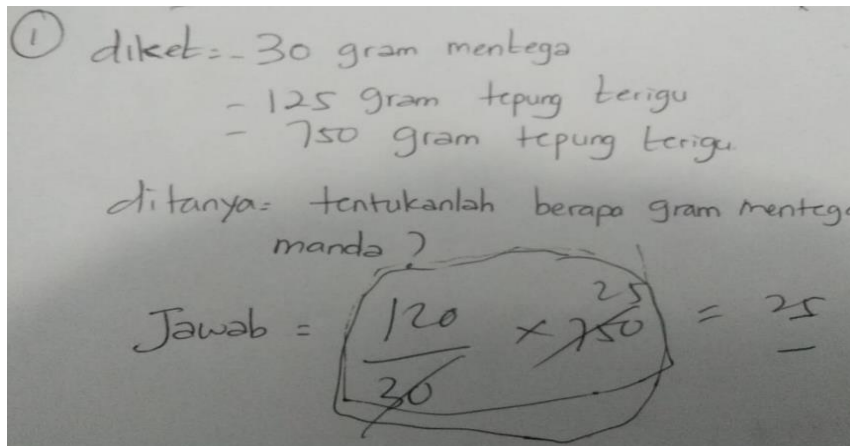 ① diket = - 30 gram mentega
- 125 gram tepung terigu
- 750 gram tepung terigu
ditanya = tentukanlah berapa gram mentega
manda?
Jawab = 120/30 × 750 25 = 25